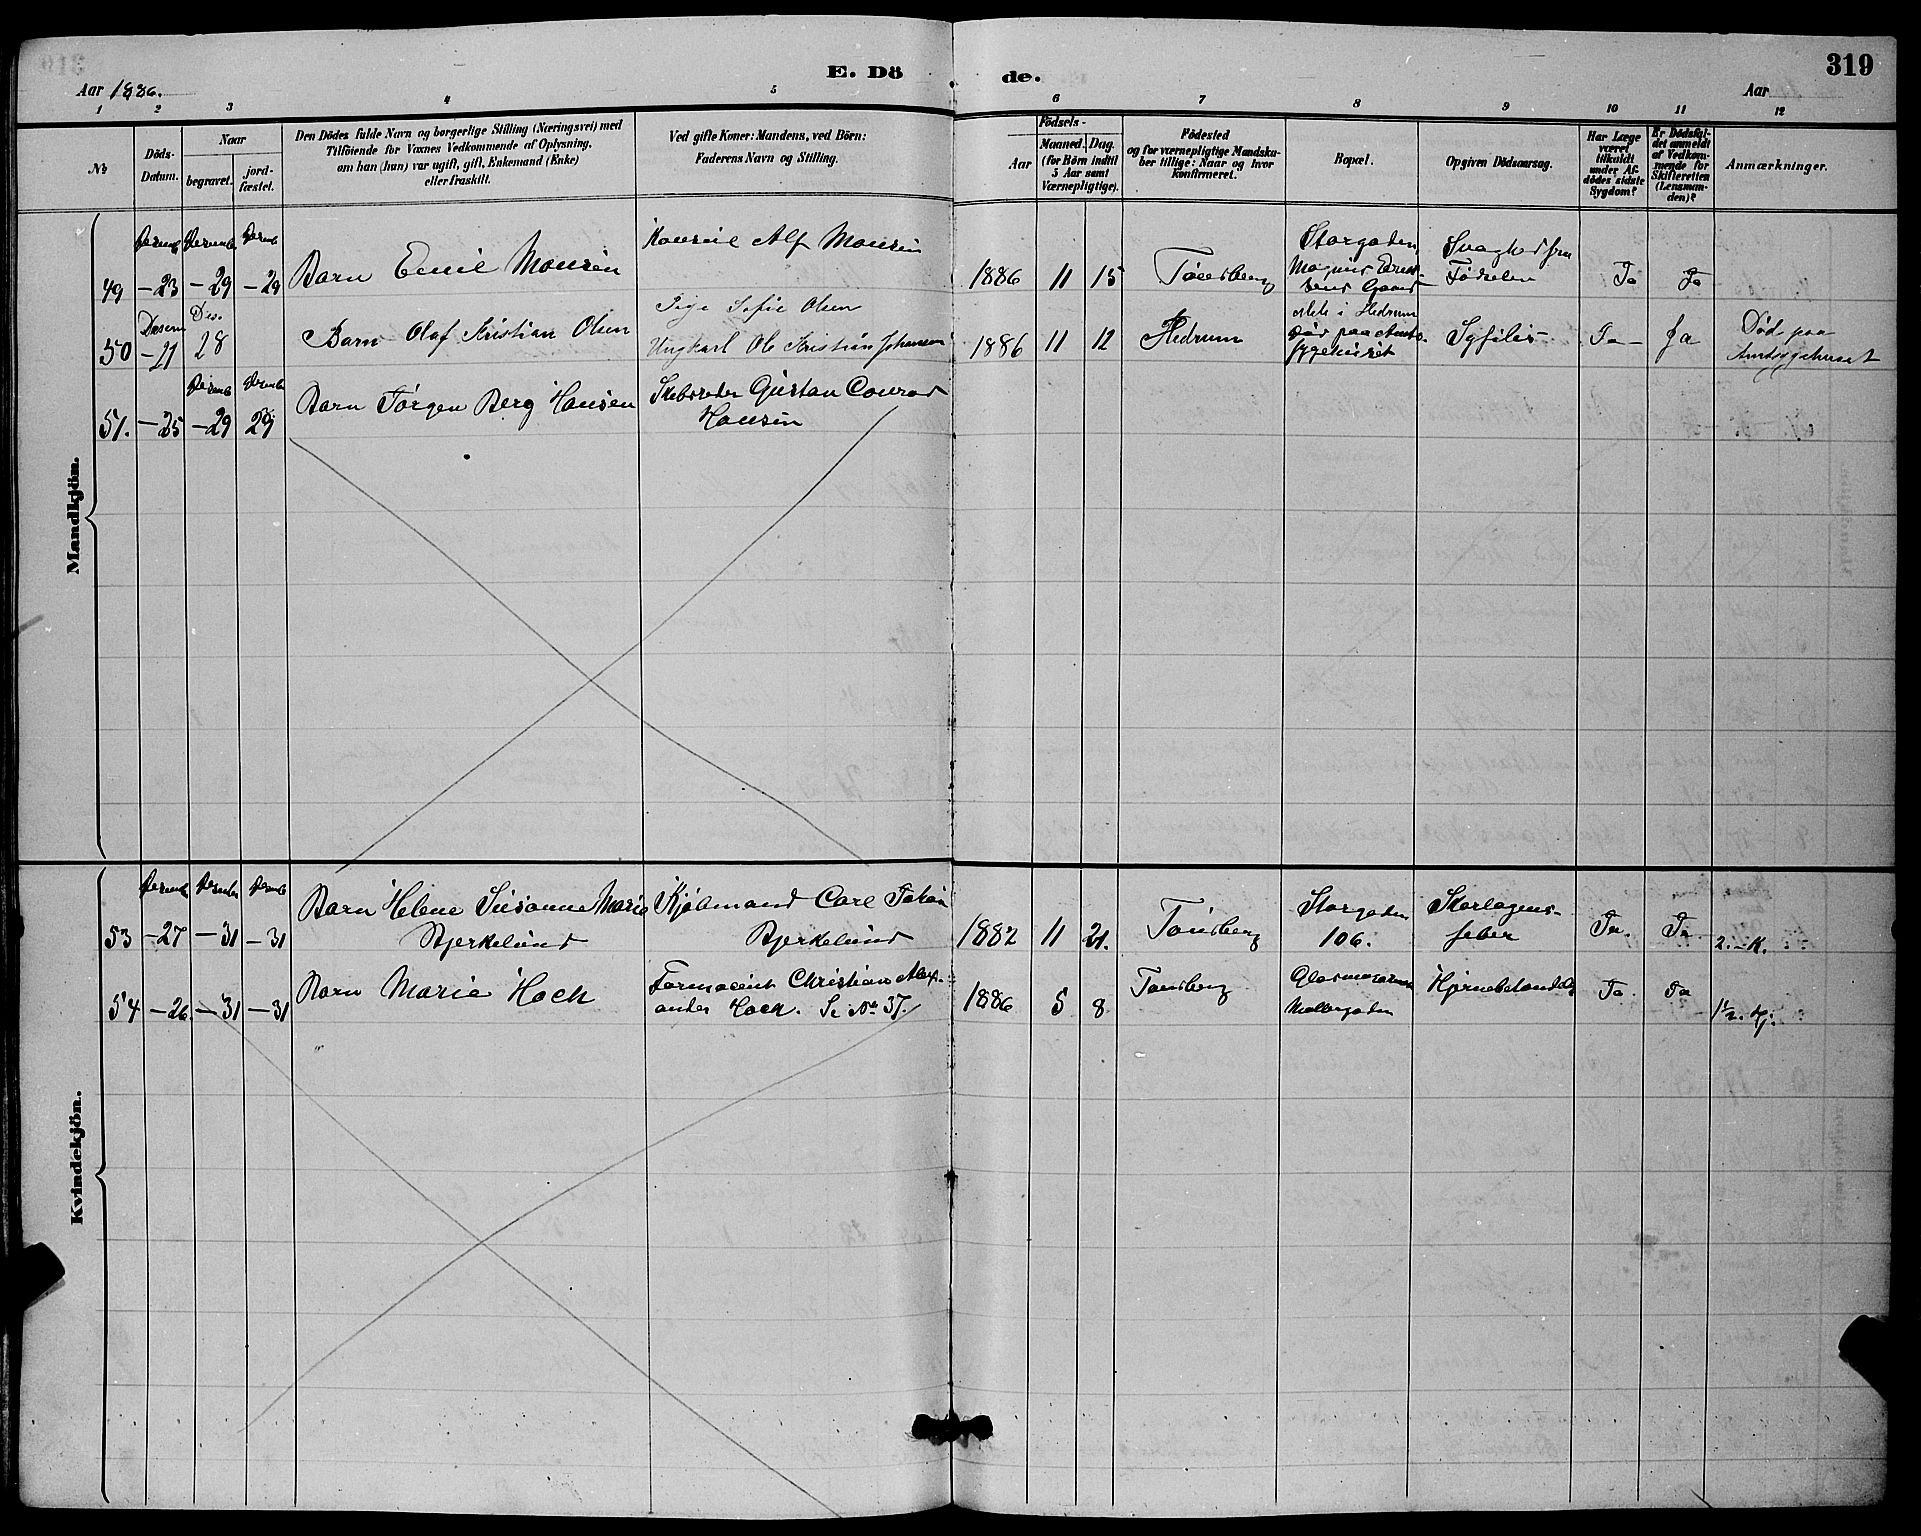 E. Dö de. 319
Aar 1886. Aar
1 2 3 4 5 6 7 8 9 10 11 12
№
Döds-
Datum.
Naar
begravet.
jord-
fæstet.
Den Dödes fulde Navn og borgerlige Stilling (Næringsvei) med
Tilföiende for Voxnes Vedkommende af Oplysning,
om han (hun) var ugift, gift, Enkemand (Enke)
eller fraskilt.
Ved gifte Koner: Mandens, ved Börn:
Faderens Navn og Stilling.
Födsels-
Aar
Maaned. Dag.
(for Börn indtil
5 Aar samt
Værnepligtige).
Födested
og for værnepligtige Mandska-
ber tillige: Naar og hvor
konfirmeret.
Bopæl.
Opgiven Dödsaarsag.
Har Læge
været
tilkaldt
under Af-
dödes sidste
Sygdom?
Er Dödsfal-
det anmeldt
af Vedkom-
mende for
Skifteretten
(Lensman-
den)?
Anmærkninger.
Mandkjön.
Desemb Desemb Desemb
49 -23 -29 -29
Barn Emil Monsen
Konsul Alf Monsen
1886 11 15
Tønsberg
Storgaden
Magnus
Gaard
Svaghed fra
Fødselen
Ja Ja
Desem Des.
50 -11 28
Barn Olaf Kristian Olsen
Pige Sofie Olsen
Ungkarl Ole Kristian Johansen
1886 11 12
Hedrum
i Hedrum
død paa Amts-
sygehuset
Syfilis-
Ja- Ja
Død paa
Amtssygehuset
Desemb Desemb
51. -25 -29 29
Barn Jørgen Berg Hansen
Skibsreder Gustav Conrad
Hansen
Kvindekjön.
Desemb Desember Desemb
53 -27 -31 -31
Barn Helene Susanne Marie
Bjerkelund
Kjøbmand Carl Johan
Bjerkelund
1882 11 21.
Tønsberg
Storgaden
106.
Skarlagens-
feber
Ja. Ja
2.-K.
54 -26. -31 -31
Barn Maria Hoch
Farmaceut Christian Alex-
ander Hoch. Se № 37.
1886 5 8
Tønsberg
Møllergaden
Hjernebetændelse
Ja. Ja
1½. Kj.